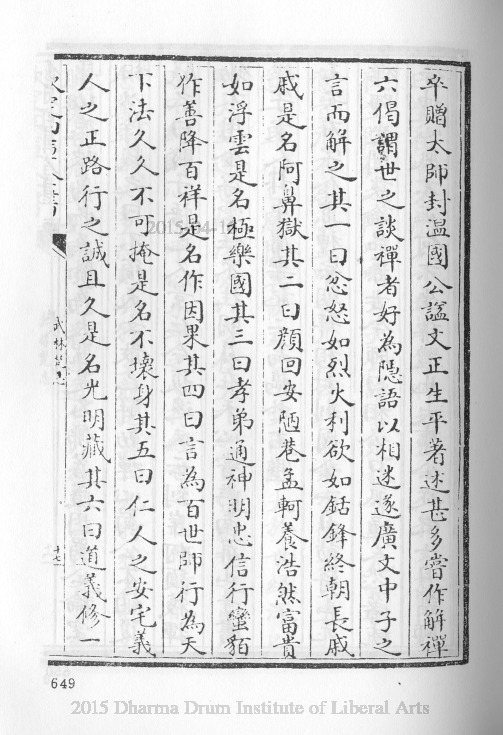 卒贈太師封溫國公諡文正生平著述甚多嘗作解禪
六偈謂世之談禪者好為隱語以相迷遂廣文中子之
言而解之其一曰忿怒如烈火利欲如銛鋒終朝長戚
戚是名阿鼻獄其二曰顏回安陋巷孟軻養浩然富貴
如浮雲是名極樂國其三曰孝弟通神明忠信行蠻貊
作善降百祥是名作因果其四曰言為百世師行為天
下法久久不可掩是名不壞身其五曰仁人之安宅義
人之正路行之誠且久是名光明藏其六曰道義修一
武林
十七
649
2015 Dharma Drum Institute of Liberal Arts